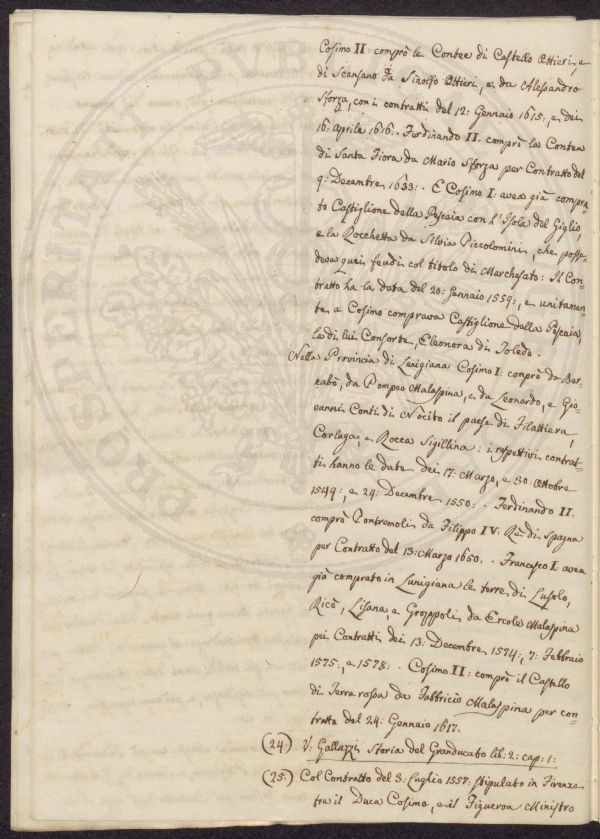 Cosimo II: comprò le Contee di Castello Ottieri, e
di Scansano da Sinolfo Ottieri, e da Alessandro
Sforza, con i contratti del 12: Gennaio 1615:, e dei
16: Aprile 1616: . Ferdinando II. comprò la Contea
di Santa Fiora da Mario Sforza per Contratto del
9: Decembre 1633: . E Cosimo I. avea già compra-
to Castiglione della Pescaia con l'Isola del Giglio,
e la Rocchetta da Silvia Piccolomini, che posse-
deva quei feudi col titolo di Marchesato: Il Con-
tratto ha la data del 20: Gennaio 1559:, e unitamen-
te a Cosimo comprava Castiglione della Pescaia,
la di lui Consorte, Eleonora di Toledo.
Nella Provincia di Lunigiana Cosimo I: comprò da Ber-
nabò, da Pompeo Malaspina, e da Leonardo, e Gio-
vanni Conti di Nocito il paese di Filattiera,
Corlaga, e Rocca Sigillina: i rispettivi contrat-
ti hanno le date dei 17: Marzo, e 30: Ottobre
1549:, e 24: Decembre 1550: . Ferdinando II:
comprò Pontremoli da Filippo IV: Rè di Spagna
per Contratto del 13: Marzo 1650: . Francesco I. avea
già comprato in Lunigiana le terre di Lusolo,
Ricò, Lisana, e Groppoli da Ercole Malaspina
pei Contratti dei 13: Decembre 1574:, 7: Febbraio
1575:, e 1578: . Cosimo II: comprò il Castello
di Terra rossa da Fabbricio Malaspina per con-
tratto del 24: Gennaio 1617:
(24:) V: Galluzzi Storia del Granducato lib: 2: cap: 1:
(25:) Col Contratto del 3: Luglio 1557: stipulato in Firenze
tra il Duca Cosimo, e il Figueroa Ministro